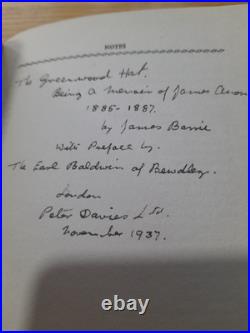 NOTES
The Greenwood Hat.
Being a Memoir of James Anon
1885-1887.
by James Barrie
With Preface by.
The Earl Baldwin of Bewdley.
London
Peter Davies Ltd.
November 1937.